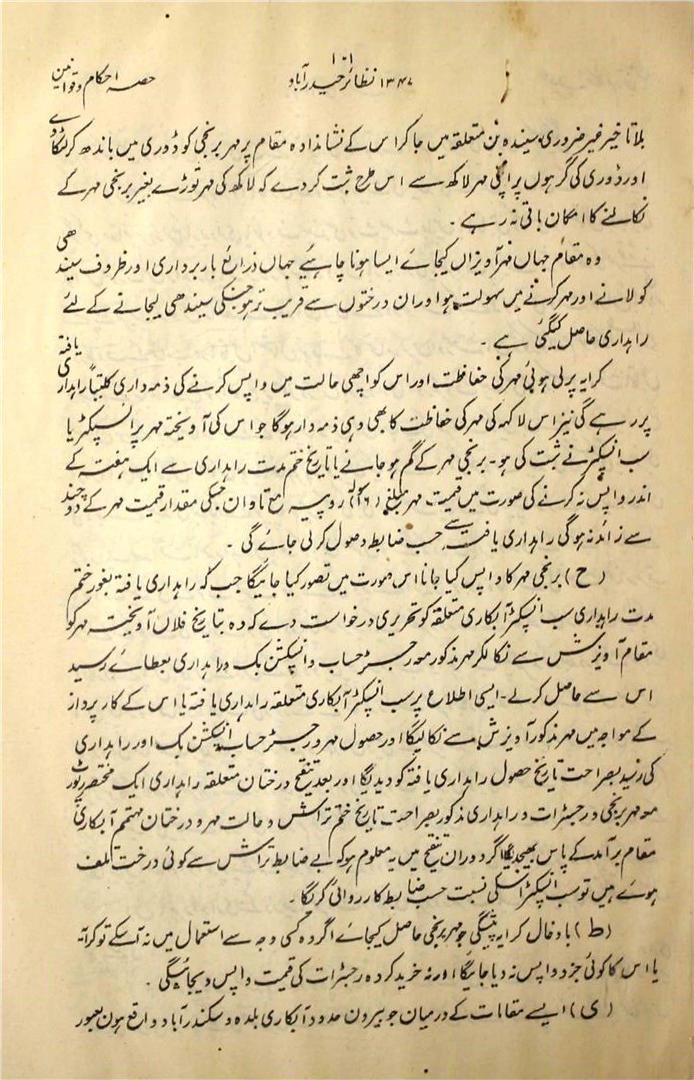 ۱۰۱
حصہ احکام و قوانین ۱۳۴۷ نظائر حیدرآباد
بلا تاخیر غیر ضروری سیندہ بن متعلقہ میں جا کر اس کے نشاندادہ مقام پر مہر برنجی کو ڈوری میں باندھ کر لٹکاوے
اور ڈوری کی گرہوں پر اپنی مہر لاکھ سے اس طرح ثبت کردے کہ لاکھ کی مہر توڑے بغیر برنجی مہر کے
نکالنے کا امکان باقی نہ رہے ۔
وہ مقام جہاں مہر آویزاں کیجائے ایسا ہونا چاہئیے جہاں ذرائع باربرداری اور ظروف سیندھی
کو لانے اور مہر کرنے میں سہولت ہو اور ان درختوں سے قریب تر ہو جنکی سیندھی لیجانے کے لئے
راہداری حاصل کیگئی ہے ۔
کرایہ پر لی ہوئی مہر کی حفاظت اور اس کو اچھی حالت میں واپس کرنے کی ذمہ داری کلیتاً راہداری یافتہ
پر رہے گی نیز اس لاکہہ کی مہر کی حفاظت کا بھی وہی ذمہ دار ہوگا جو اس کی آویختہ مہر پر انسپکٹر یا
سب انسپکٹر نے ثبت کی ہو۔ برنجی مہر کے گم ہو جانے یا تاریخ ختم مدت راہداری سے ایک ہفتہ کے
اندر واپس نہ کرنے کی صورت میں قیمت مہر مبلغ روپیہ مع تاوان جسکی مقدار قیمت مہر کے دوچند
سے زائد نہ ہوگی راہداری یافتہ سے حسب ضابطہ وصول کر لی جائے گی ۔
(ح) برنجی مہر کا واپس کیا جانا اس صورت میں تصور کیا جائیگا جب کہ راہداری یافتہ بغور ختم
مدت راہداری سب انسپکٹر آبکاری متعلقہ کو تحریری درخواست دے کہ وہ بتاریخ فلاں آویختہ مہر کو
مقام آویزش سے نکالکر مہر مذکور معہ رجسٹر حساب و انسپکشن بک و راہداری بعطائے رسید
اس سے حاصل کرلے۔ ایسی اطلاع پر سب انسپکٹر آبکاری متعلقہ راہداری یافتہ یا اس کے کارپرداز
کے مواجہ میں مہر مذکور آویزش سے نکالیگا اور حصول مہر و رجسٹر حساب انسپکشن بک اور راہداری
کی رسید بصراحت تاریخ حصول راہداری یافتہ کو دیدیگا اور بعد تنقیح درختان متعلقہ راہداری ایک مختصر رپورٹ
معہ مہر برنجی و رجسٹرات و راہداری مذکور بصراحت تاریخ ختم تراش و حالت مہر و درختان مہتمم آبکاری
مقام برآمد کے پاس بھیجدیگا اگر دوران تنقیح میں یہ معلوم ہو کہ بے ضابطہ تراش سے کوئی درخت تلف
ہوئے ہیں تو سب انسپکٹر اسکی نسبت حسب ضابطہ کارروائی کریگا ۔
(ط) بادخال کرایہ پیشگی جو مہر برنجی حاصل کیجائے اگر وہ کسی وجہ سے استعمال میں نہ آسکے تو کرایہ
یا اس کا کوئی جزو واپس نہ دیا جائیگا اور نہ خرید کردہ رجسٹرات کی قیمت واپس دیجائیگی ۔
(ی) ایسے مقامات کے درمیان جو بیرون حدود آبکاری بلدہ و سکندرآباد واقع ہوں بعبور